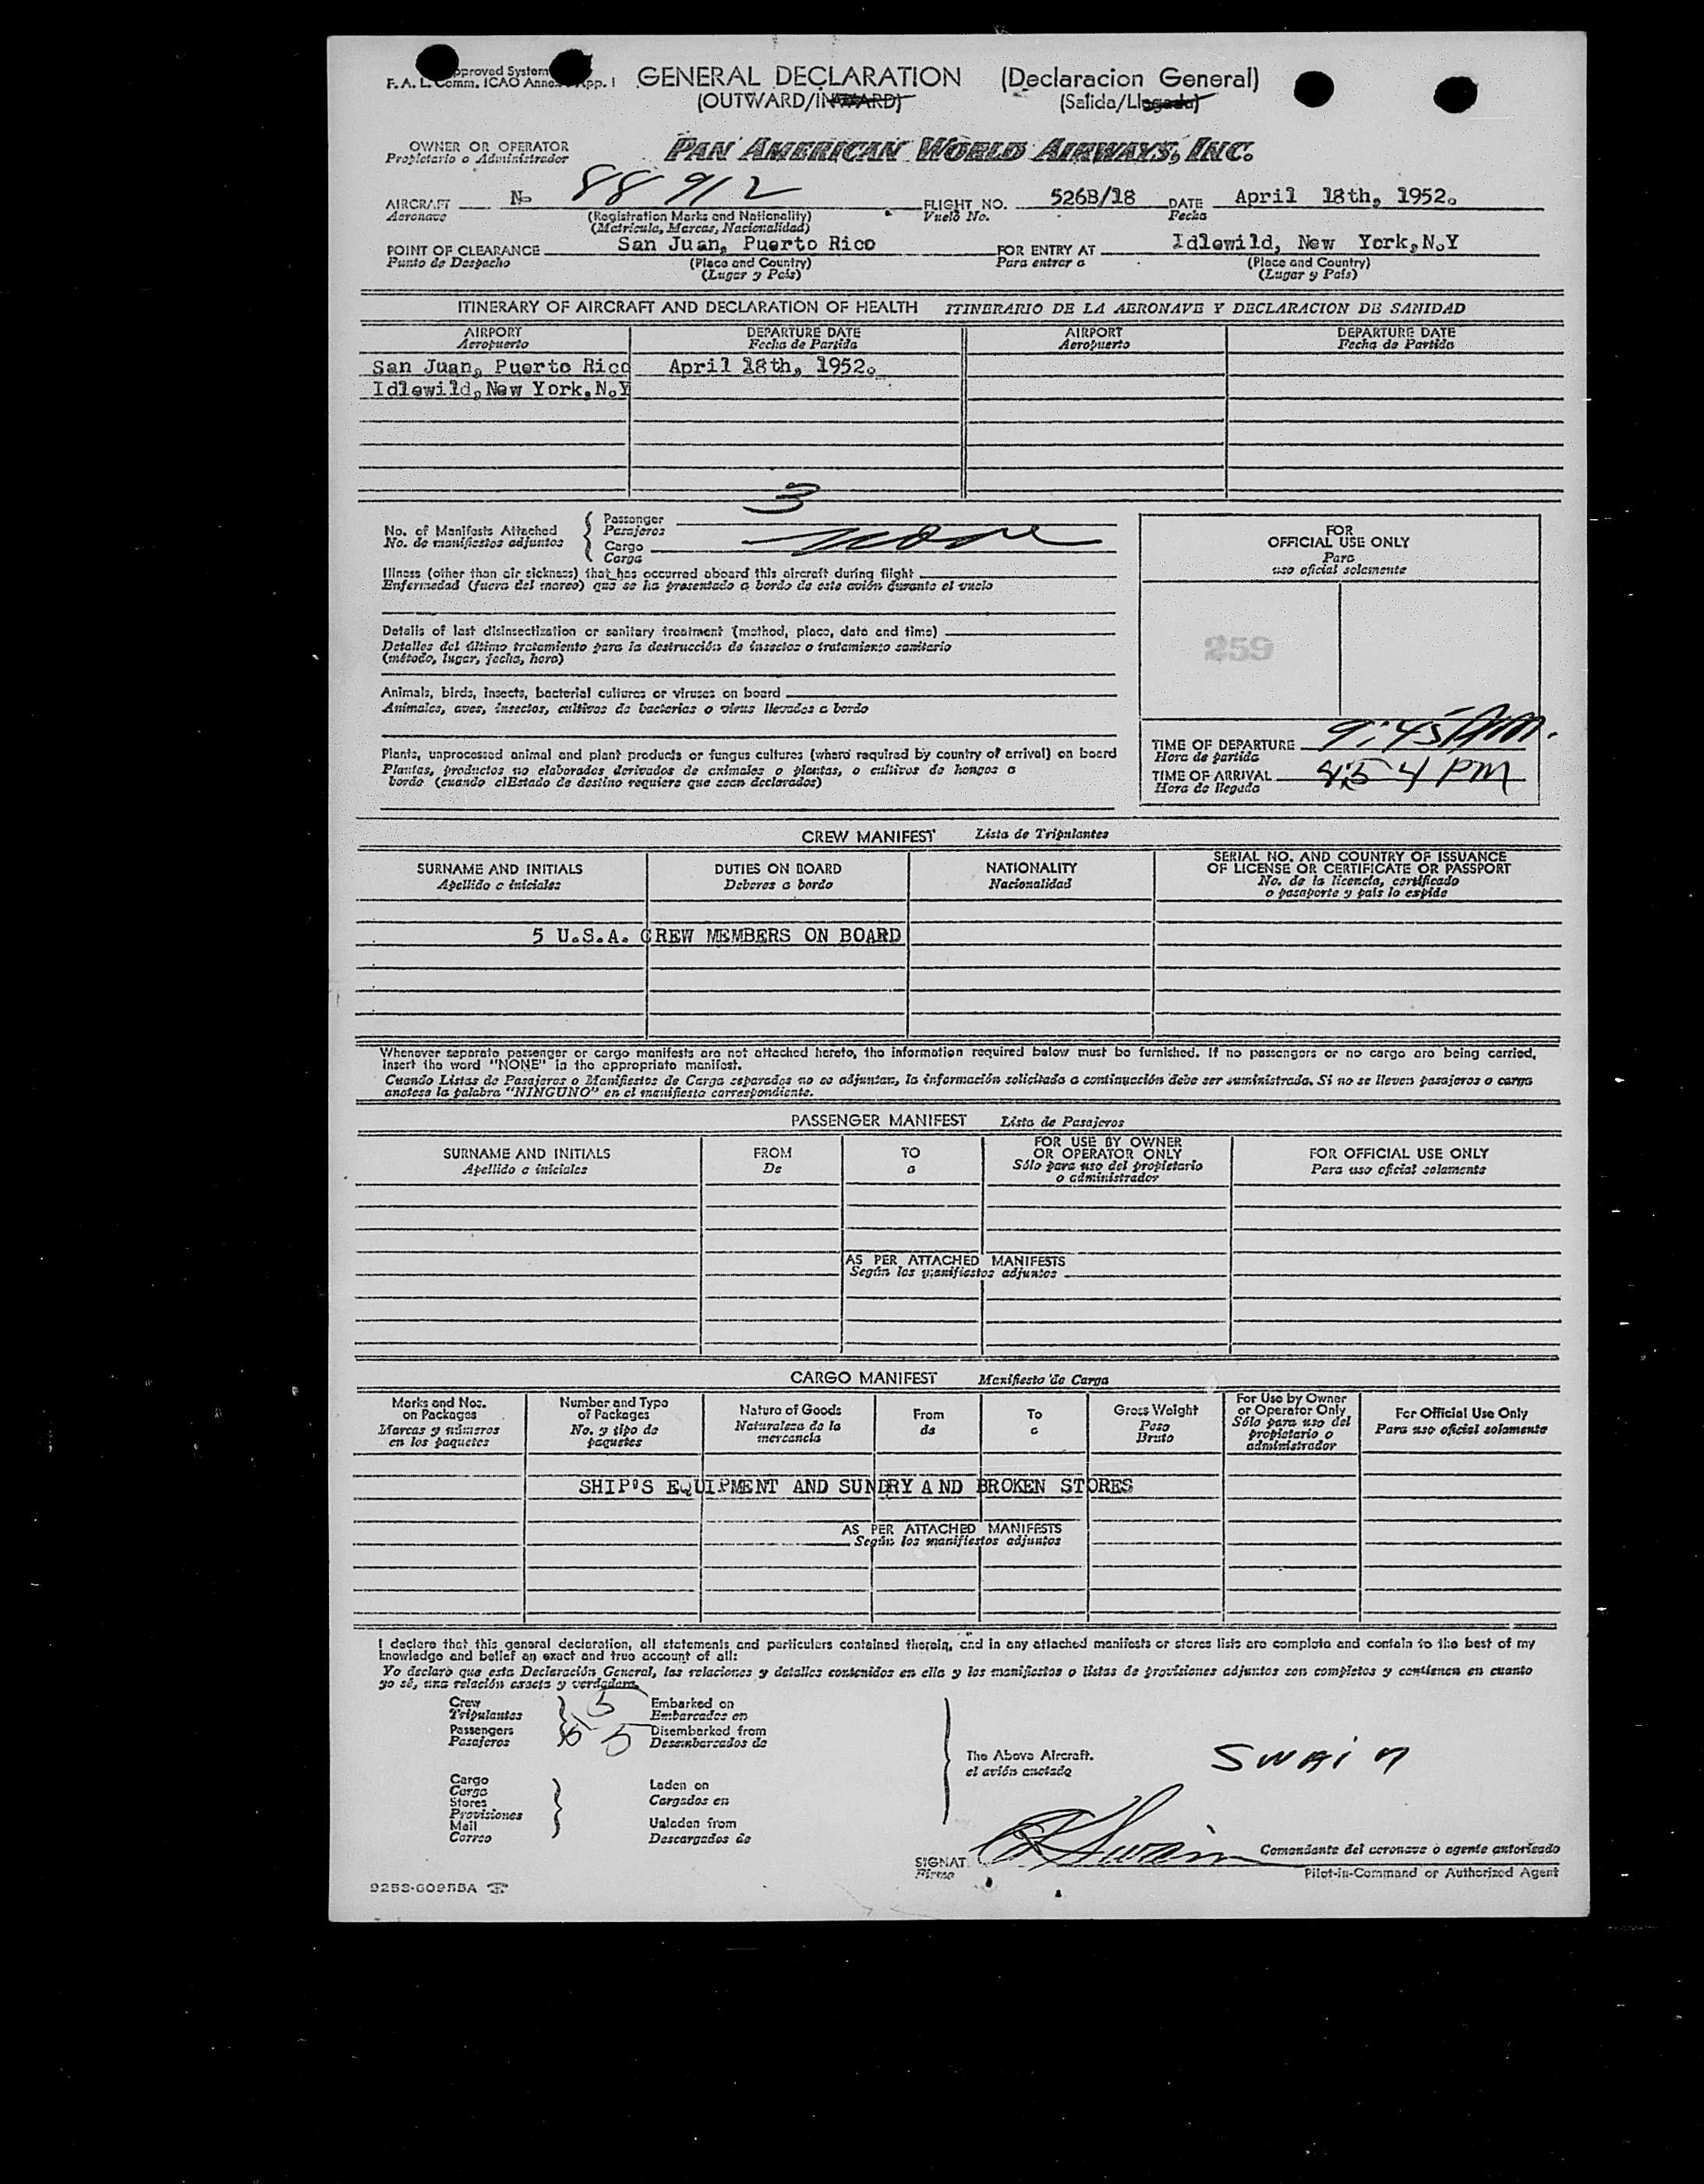 pproved System
F.A.L. Comm. ICAO Anne pp. I
GENERAL DECLARATION (Declaracion General)
(OUTWARD/INWARD) (Salida/Llegada)
OWNER OR OPERATOR
Propietario o Administrador
PAN AMERICAN WORLD AIRWAYS, INC.
AIRCRAFT N- 88912 FLIGHT NO. 526B/18 DATE April 18th, 1952.
Aeronave (Registration Marks and Nationality) Vuelo No. Fecha
(Matricula, Marcas, Nacionalidad)
POINT OF CLEARANCE San Juan, Puerto Rico FOR ENTRY AT Idlewild, New York, N.Y
Punto de Despacho (Place and Country) Para entrar a (Place and Country)
(Lugar y País) (Lugar y País)
ITINERARY OF AIRCRAFT AND DECLARATION OF HEALTH ITINERARIO DE LA AERONAVE Y DECLARACION DE SANIDAD
AIRPORT DEPARTURE DATE AIRPORT DEPARTURE DATE
Aeropuerto Fecha de Partida Aeropuerto Fecha de Partida
San Juan, Puerto Rico April 18th, 1952.
Idlewild, New York, N.Y
No. of Manifests Attached
No. de manifiestos adjuntos
Passenger 3
Pasajeros
Cargo none
Carga
Illness (other than air sickness) that has occurred aboard this aircraft during flight
Enfermedad (fuera del mareo) que se ha presentado a bordo de este avión durante el vuelo
Details of last disinsectization or sanitary treatment (method, place, date and time)
Detalles del último tratamiento para la destrucción de insectos o tratamiento sanitario
(método, lugar, fecha, hora)
Animals, birds, insects, bacterial cultures or viruses on board
Animales, aves, insectos, cultivos de bacterias o virus llevados a bordo
Plants, unprocessed animal and plant products or fungus cultures (where required by country of arrival) on board
Plantas, productos no elaborados derivados de animales o plantas, o cultivos de hongos a
bordo (cuando elEstado de destino requiere que sean declarados)
FOR
OFFICIAL USE ONLY
Para
uso oficial solamente
259
TIME OF DEPARTURE 9:45 AM.
Hora de partida
TIME OF ARRIVAL 4:54 PM
Hora de llegada
CREW MANIFEST Lista de Tripulantes
SURNAME AND INITIALS DUTIES ON BOARD NATIONALITY SERIAL NO. AND COUNTRY OF ISSUANCE
OF LICENSE OR CERTIFICATE OR PASSPORT
Apellido e iniciales Deberes a bordo Nacionalidad No. de la licencia, certificado
o pasaporte y país lo expide
5 U.S.A. CREW MEMBERS ON BOARD
Whenever separate passenger or cargo manifests are not attached hereto, the information required below must be furnished. If no passengers or no cargo are being carried,
insert the word "NONE" in the appropriate manifest.
Cuando Listas de Pasajeros o Manifiestos de Carga separados no se adjuntan, la información solicitada a continuación debe ser suministrada. Si no se lleven pasajeros o carga
anotese la palabra "NINGUNO" en el manifiesto correspondiente.
PASSENGER MANIFEST Lista de Pasajeros
SURNAME AND INITIALS FROM TO FOR USE BY OWNER
OR OPERATOR ONLY FOR OFFICIAL USE ONLY
Apellido e iniciales De a Sólo para uso del propietario
o administrador Para uso oficial solamente
AS PER ATTACHED MANIFESTS
Según los manifiestos adjuntos
CARGO MANIFEST Manifiesto de Carga
Marks and Nos.
on Packages
Marcas y números
en los paquetes
Number and Type
of Packages
No. y tipo de
paquetes
Nature of Goods
Naturaleza de la
mercancia
From
de
To
a
Gross Weight
Peso
Bruto
For Use by Owner
or Operator Only
Sólo para uso del
propietario o
administrador
For Official Use Only
Para uso oficial solamente
SHIP'S EQUIPMENT AND SUNDRY AND BROKEN STORES
AS PER ATTACHED MANIFESTS
Según los manifiestos adjuntos
I declare that this general declaration, all statements and particulars contained therein, and in any attached manifests or stores lists are complete and contain to the best of my
knowledge and belief an exact and true account of all:
Yo declaro que esta Declaración General, las relaciones y detalles contenidos en ella y los manifiestos o listas de provisiones adjuntos son completos y contienen en cuanto
yo sé, una relación exacta y verdadera.
Crew 5 Embarked on
Tripulantes Embarcados en
Passengers 55 Disembarked from
Pasajeros Desembarcados de
Cargo
Carga
Stores
Provisiones
Mail
Correo
Laden on
Cargados en
Unladen from
Descargados de
The Above Aircraft.
el avión cuotado
SWAIN
SIGNAT Swain
Firma
Comandante del aeronave o agente autorizado
Pilot-in-Command or Authorized Agent
9253-60955A